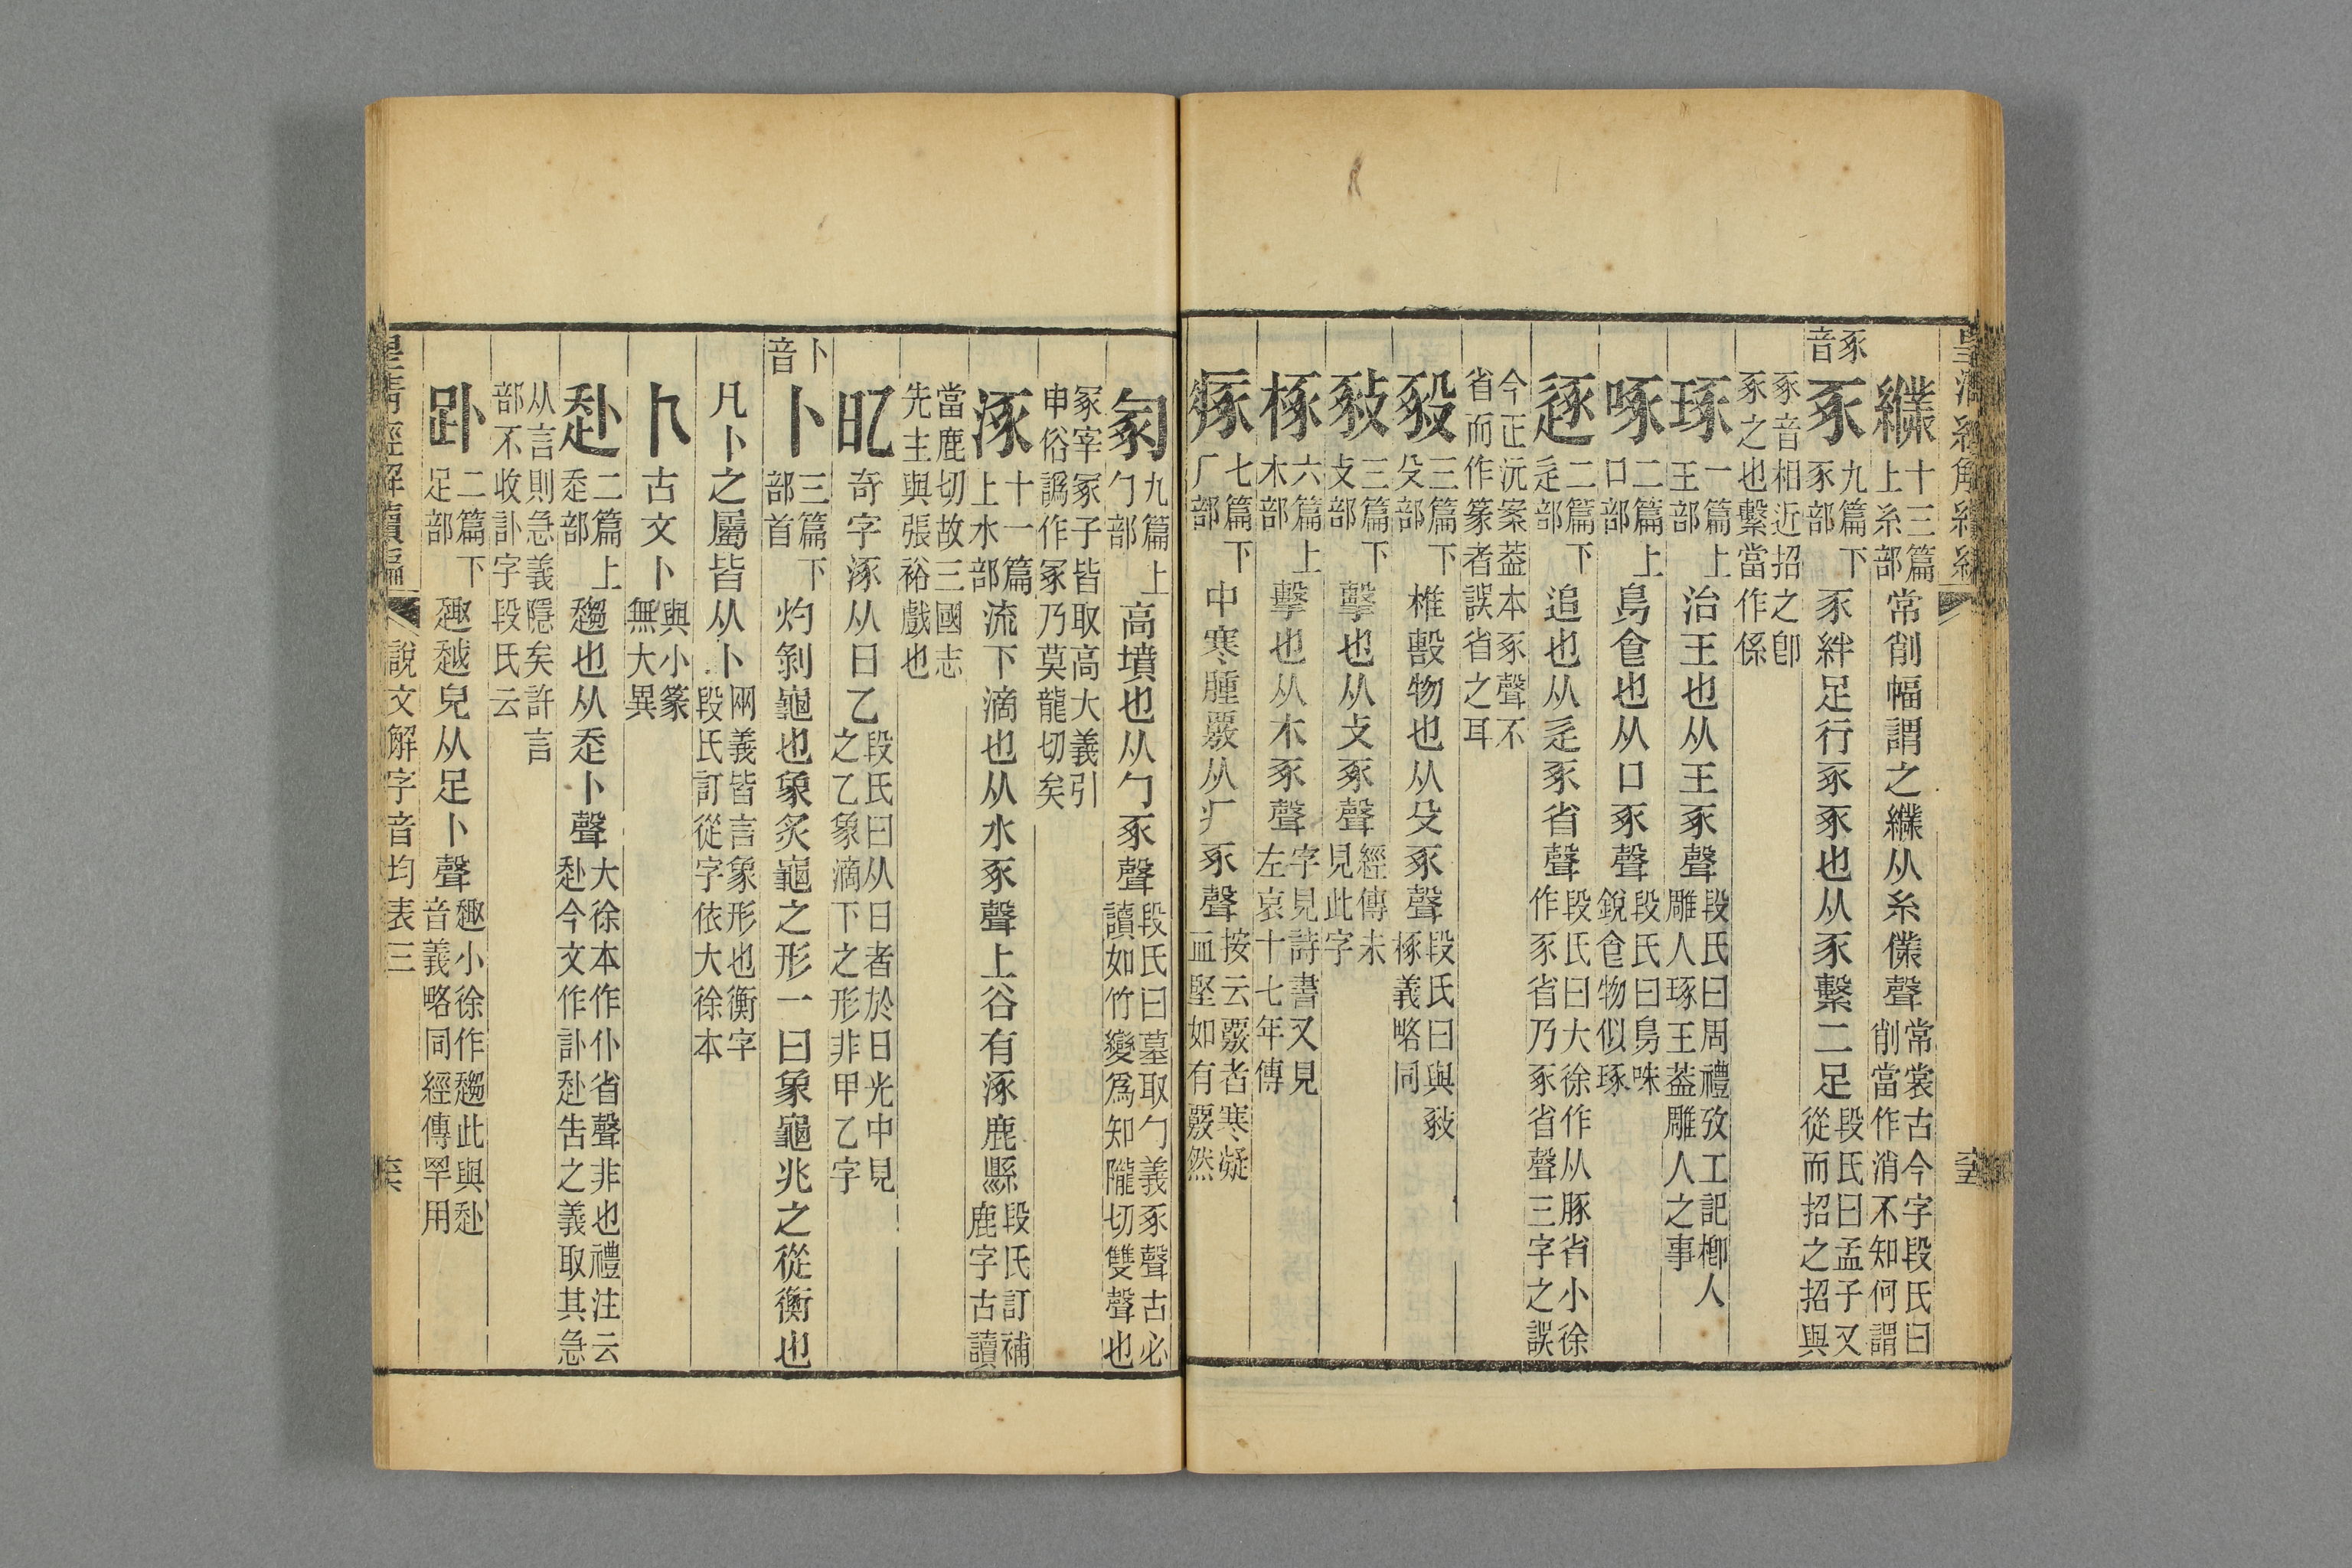 皇清經解續編
纀十三篇上糸部常削幅謂之纀从糸僕聲常裳古今字段氏曰削當作消不知何謂
豖音
豖九篇下豕部豕絆足行豖豖也从豕繫二足段氏曰孟子又從而招之招與
豖音相近招之卽豖之也繫當作係
琢一篇上王部治王也从王豖聲段氏曰周禮攷工記㮚人雕人琢王葢雕人之事
啄二篇上口部鳥食也从口豖聲段氏曰鳥咮銳食物似琢
逐二篇下辵部追也从辵豕省聲段氏曰大徐作从豚省小徐作豕省乃豕省聲三字之誤
今正沅案葢本豖聲不省而作篆者誤省之耳
毅三篇下殳部椎毄物也从殳豖聲段氏曰與㪣椓義略同
㪣三篇下攴部擊也从攴豖聲經傳未見此字
椓六篇上木部擊也从木豖聲字見詩書又見左哀十七年傳
瘃七篇下疒部中寒腫覈从疒豖聲按云覈者寒凝血堅如有覈然
冢九篇上勹部高墳也从勹豖聲段氏曰墓取勹義豖聲古必讀如竹變爲知隴切雙聲也
冢宰冢子皆取高大義引申俗譌作冡乃莫龍切矣
涿十一篇上水部流下滴也从水豖聲上谷有涿鹿縣段氏訂補鹿字古讀
當鹿切故三國志先主與張裕戲也
㫇奇字涿从日乙段氏曰从日者於日光中見之乙象滴下之形非甲乙字
卜音
卜三篇下部首灼剝龜也象炙龜之形一曰象龜兆之從衡也
凡卜之屬皆从卜兩義皆言象形也衡字段氏訂從字依大徐本
𠁡古文卜與小篆無大異
赴二篇上走部趨也从走卜聲大徐本作仆省聲非也禮注云赴今文作訃赴告之義取其急
从言則急義隱矣許言部不收訃字段氏云
趴二篇下足部趣越皃从足卜聲趣小徐作趨此與赴音義略同經傳罕用
皇清經解續編
說文解字音均表三